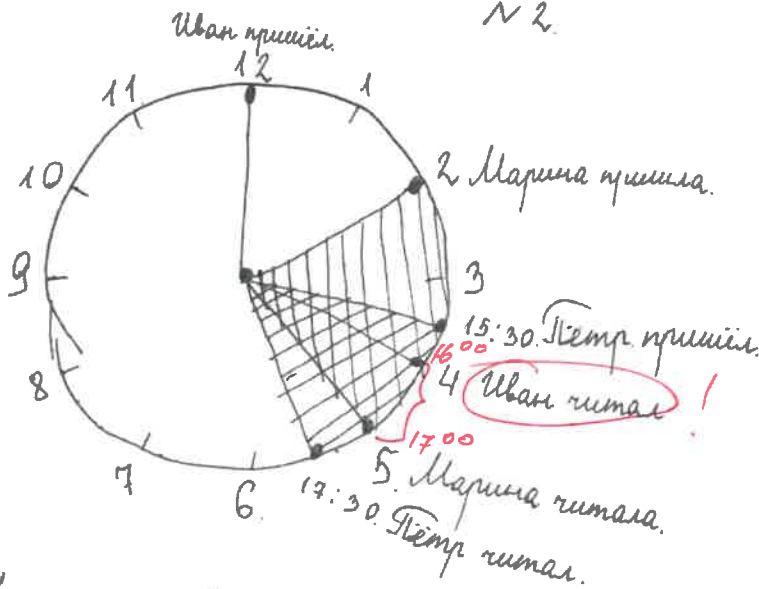 N 2.
Иван пришёл.
12
11
1
10
2 Марина пришла.
9
3
15:30. Пётр пришёл.
16 00
4 Иван читал !
8
17 00
7
6
5. Марина читала.
17:30. Пётр читал.